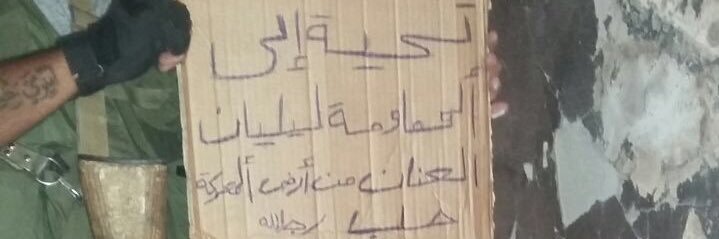 تحية إلى
المقاومة ليليان
العنان من أرض المعركة
حلب رجالله